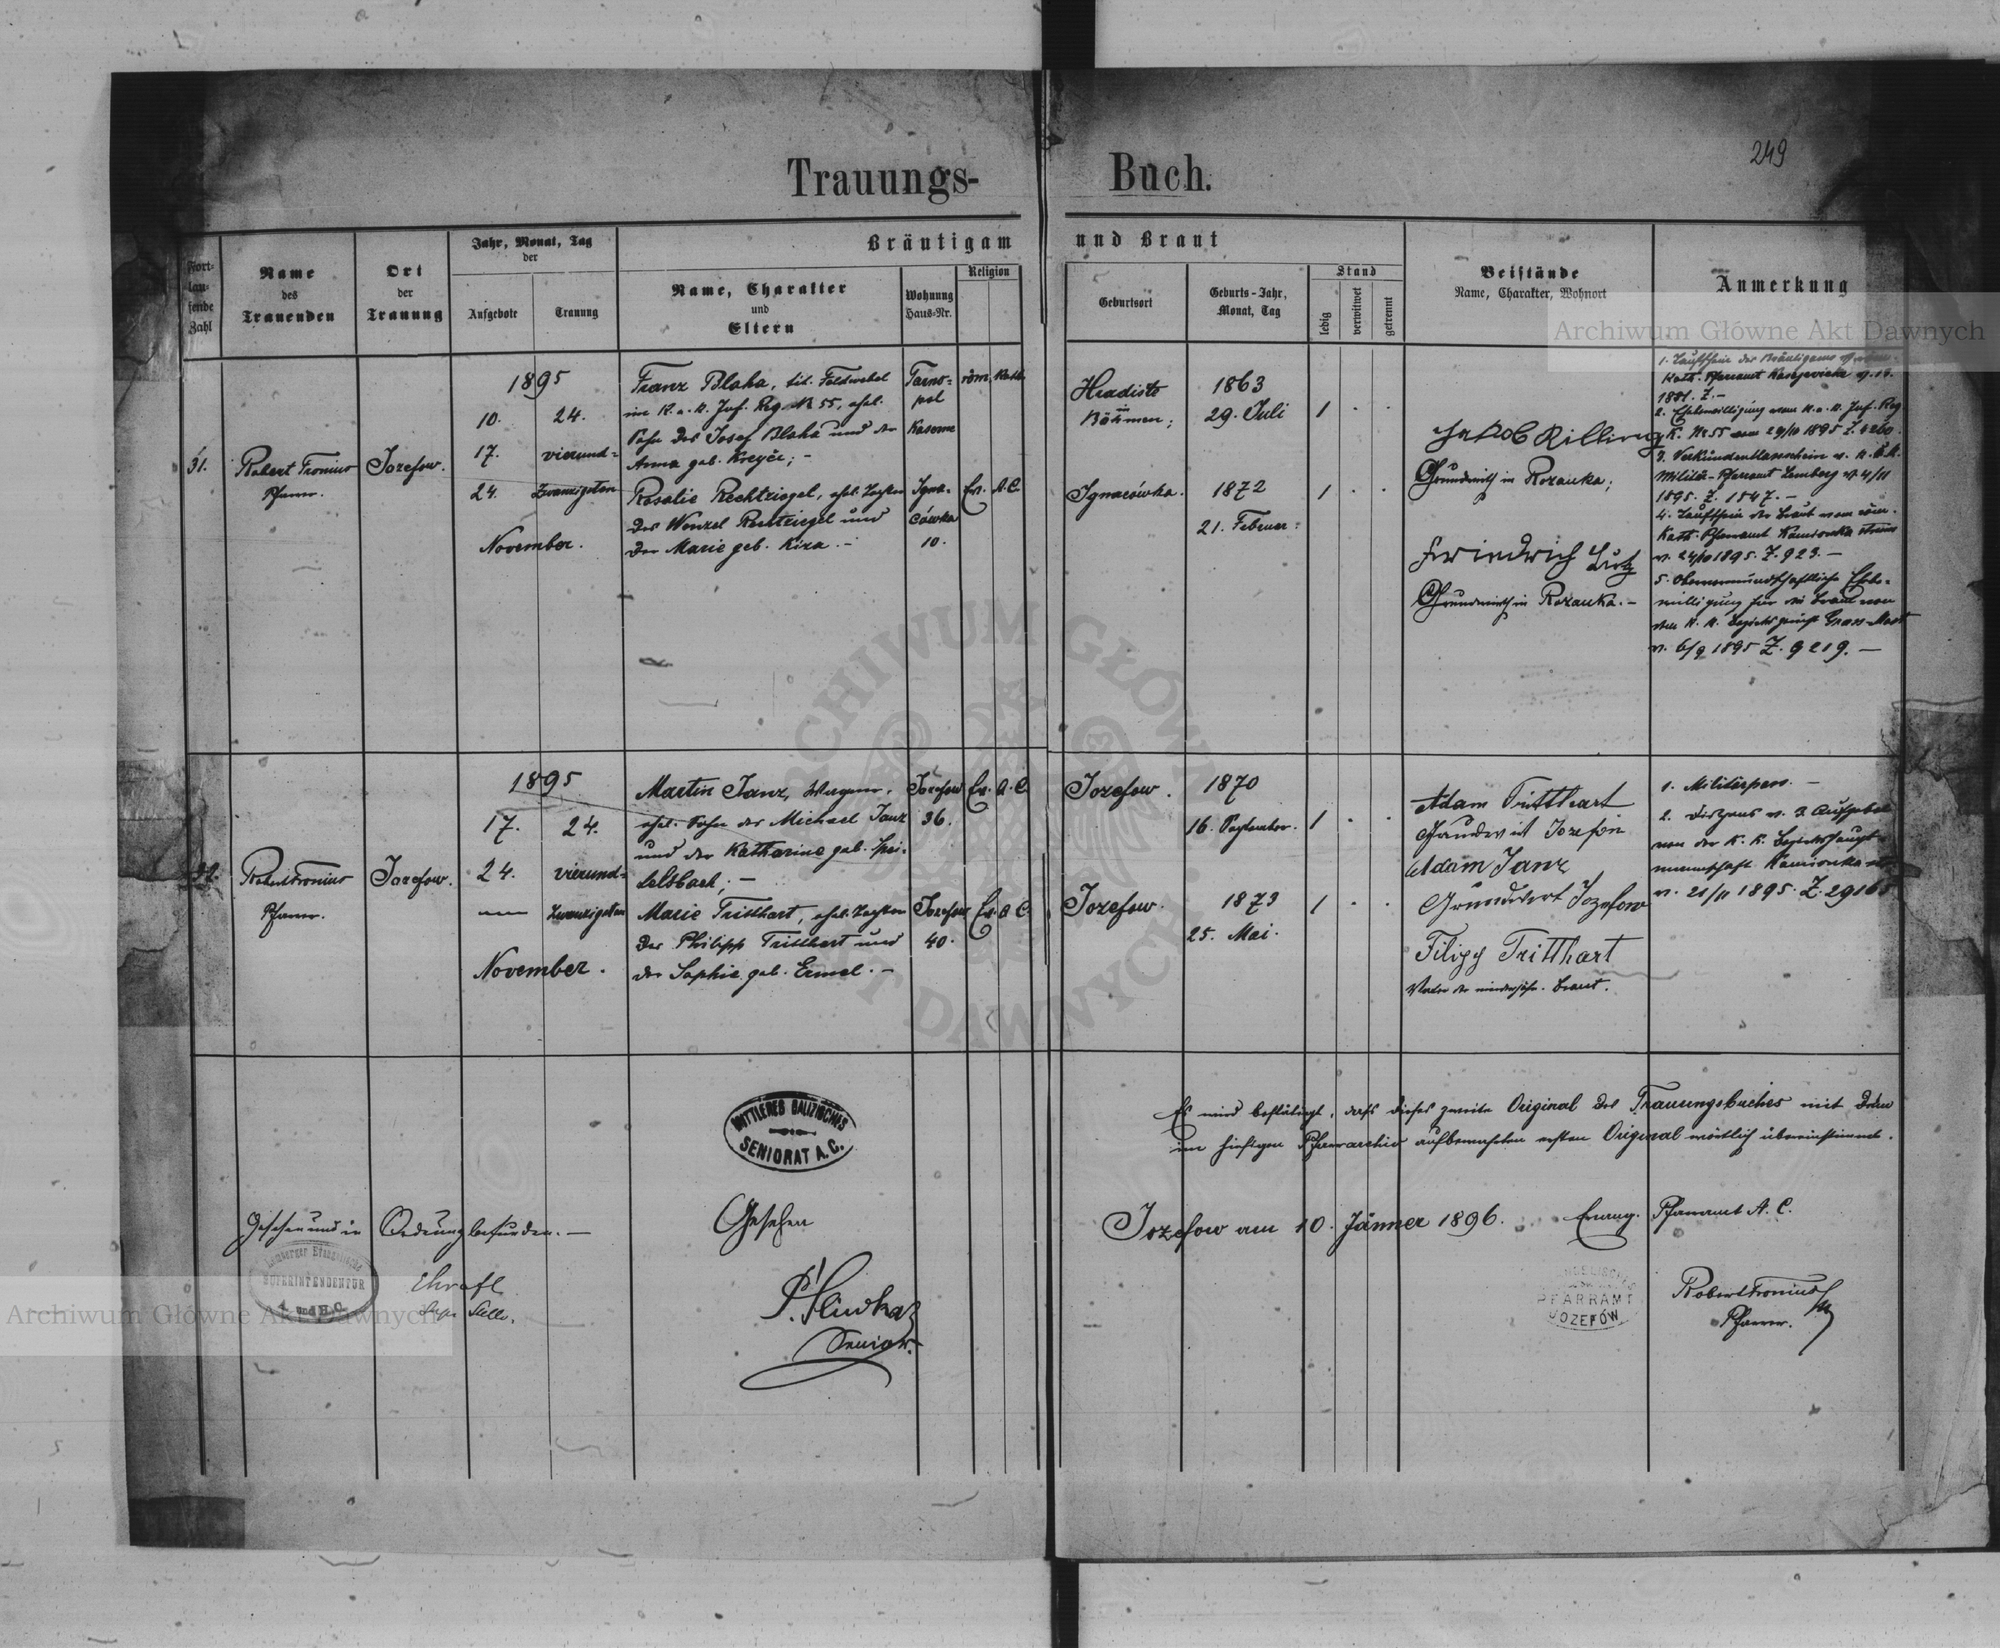 249
Trauungs-Buch.
Fort-
lau-
fende
Zahl
Name
des
Trauenden
Ort
der
Trauung
Jahr, Monat, Tag
der
Aufgebote
Trauung
Bräutigam und Braut
Name, Charakter
und
Eltern
Wohnung
Haus-Nr.
Religion
Geburtsort
Geburts-Jahr,
Monat, Tag
Stand
ledig
verwitwet
getrennt
Beistände
Name, Charakter, Wohnort
Anmerkung
Archiwum Główne Akt Dawnych
31.
Robert Fronius
Pfarrer.
Jozefow.
1895
10. 24.
17. vierund-
24. zwanzigsten
November.
Franz Blaha, tit. Feldwebel
im K. u. K. Inf. Reg. № 55, ehel.
Sohn des Josef Blaha und der
Anna geb. Kreyče; –
Tarno-
pol
Kaserne
röm. Kath.
Rosalie Rechtziegel, ehel. Tochter
des Wenzel Rechtziegel und
der Marie geb. Kiza. –
Igna-
cówka
10.
Ev. A. C.
Hradiste
in
Böhmen;
1863
29. Juli
1
Ignacówka.
1872
21. Februar.
1
Jakob Killing
Grundwirth in Rozanka;
Friedrich Lutz
Grundwirth in Rozanka. –
1. Taufschein des Bräutigams v. röm.
Kath. Pfarramt
1881. Z. –
2. Ehebewilligung vom K. u. K. Inf. Reg.
K. Nr 55 vom 29/10 1895 Z. 4260.
3. Verkündentlassschein v. K. u. K.
Militär-Pfarramt Lemberg v. 4/11
1895. Z. 1547. –
4. Taufschein der Braut vom röm.
Kath. Pfarramt Kamionka
v. 24/10 1895. Z. 923. –
5. Obervormundschaftliche Ehebe-
willigung für die Braut von
dem K. K. Bezirksgericht Gross-Most
v. 6/9 1895 Z. 9219. –
32.
Robert Fronius
Pfarrer.
Jozefow.
1895
17. 24.
24. vierund-
zwanzigsten
November.
Martin Janz, Wagner,
ehel. Sohn des Michael Janz
und der Katharine geb. Spei-
telsbach; –
Jozefow
36.
Ev. A. C.
Marie Tritthart, ehel. Tochter
des Philipp Tritthart und
der Sophie geb. Ermel. –
Jozefow
40.
Ev. A. C.
Jozefow.
1870
16. September.
1
Jozefow.
1873
25. Mai.
1
Adam Tritthart
Adam Janz
Grundwirt Jozefow
Filipp Tritthart
Vater der minderjähr. Braut.
1. Militärpass. –
2. Dispens v. 3. Aufgebot
von der K. K. Bezirkshaupt-
mannschaft Kamionka
v. 21/11 1895. Z. 29168
Es wird bestätigt, dass dieses zweite Original des Trauungsbuches mit dem
im hiesigen Pfarrarchiv aufbewahrten ersten Original wörtlich übereinstimmt.
Jozefow am 10. Jänner 1896. Evang. Pfarramt A. C.
Robert Fronius
Pfarrer.
PFARRAMT
JOZEFÓW
MITTLERES GALIZISCHES
SENIORAT A. C.
Gesehen
Senior.
Gesehen und in Ordnung befunden. –
Lemberger Evangelische
SUPERINTENDENTUR
A. und H. C.
Archiwum Główne Akt Dawnych
ARCHIWUM GŁÓWNE AKT DAWNYCH